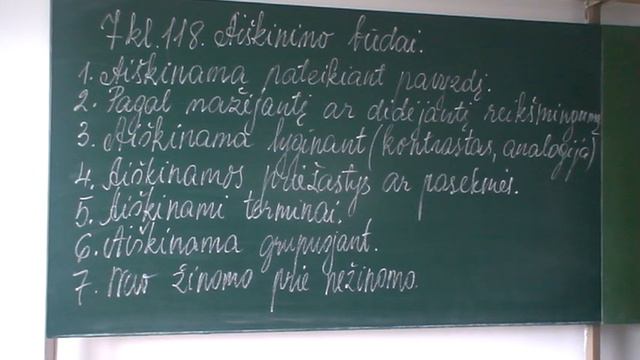 7 kl. 118. Aiškinimo būdai.
1. Aiškinama pateikiant pavyzdį.
2. Pagal mažėjantį ar didėjantį reikšmingumą
3. Aiškinama lyginant (kontrastas, analogija)
4. Aiškinamos priežastys ar pasekmės.
5. Aiškinami terminai.
6. Aiškinama grupuojant.
7. Nuo žinomo prie nežinomo.